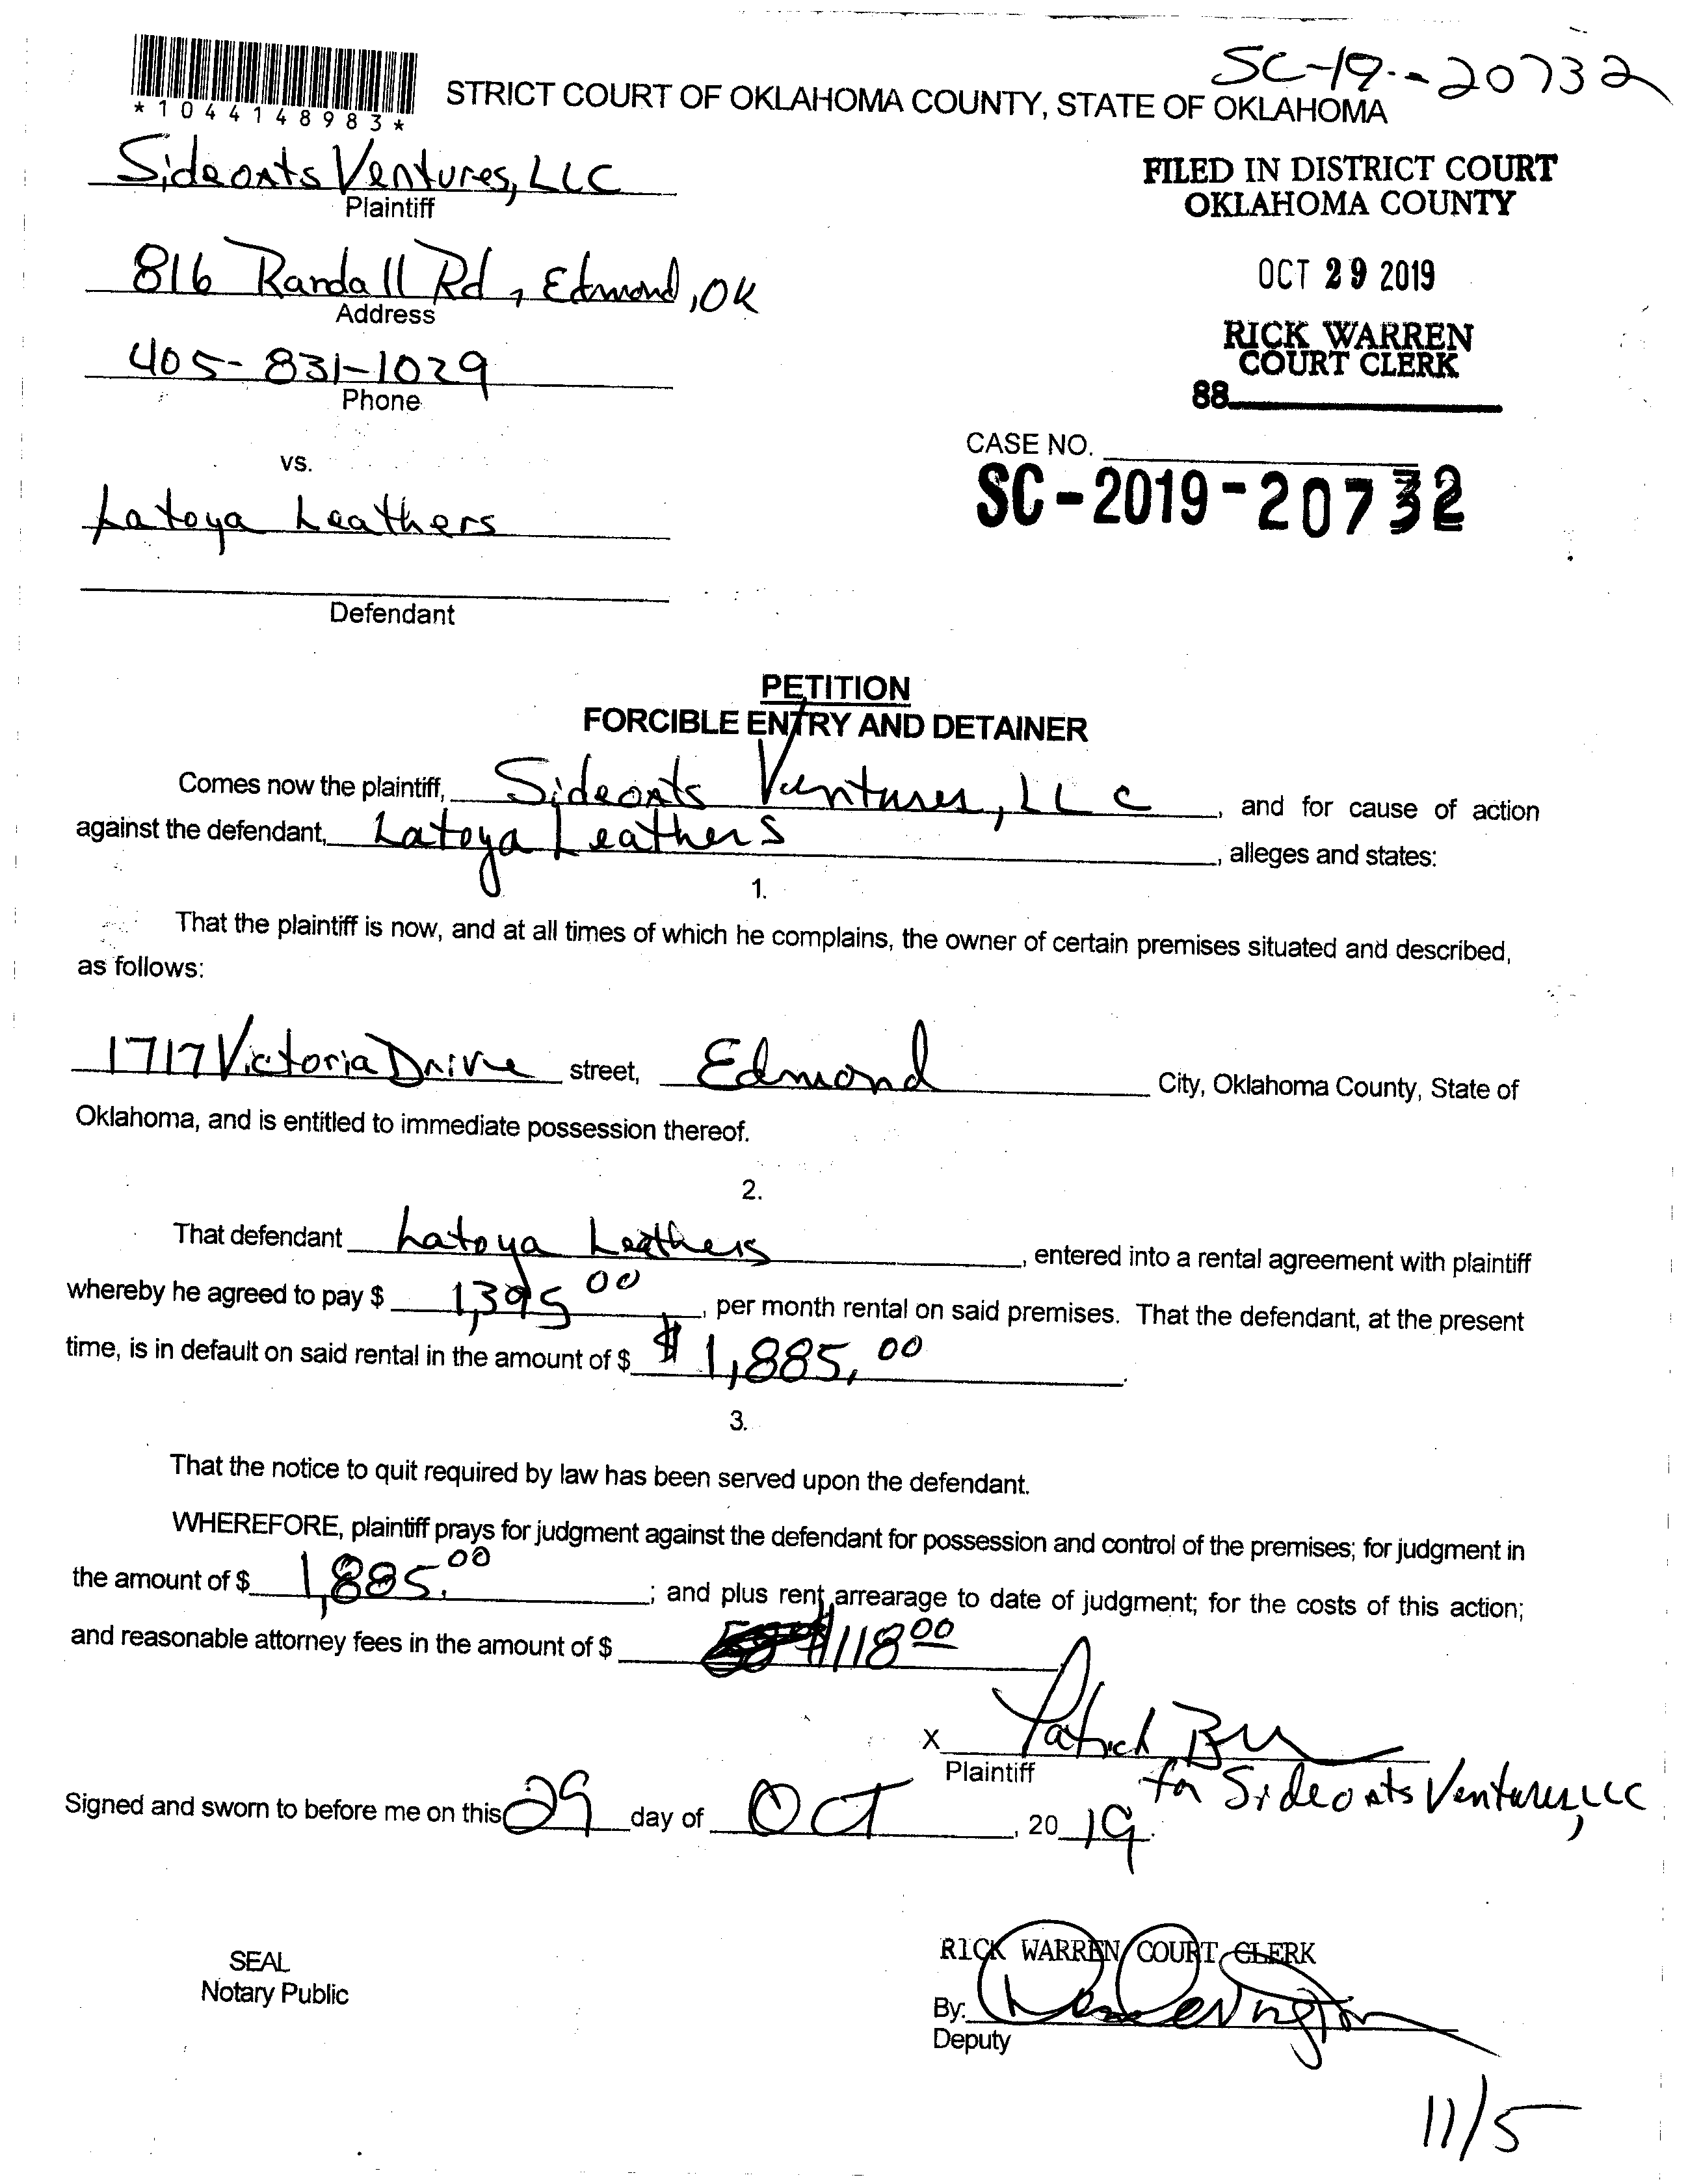 SC-19--20732
*1044148983*
STRICT COURT OF OKLAHOMA COUNTY, STATE OF OKLAHOMA
Sideoats Ventures, LLC
Plaintiff
FILED IN DISTRICT COURT
OKLAHOMA COUNTY
816 Randall Rd, Edmond, OK
Address
OCT 29 2019
405-831-1029
Phone
RICK WARREN
COURT CLERK
88
vs.
CASE NO.
SC-2019-20732
Latoya Leathers
Defendant
PETITION
FORCIBLE ENTRY AND DETAINER
Comes now the plaintiff, Sideoats Ventures, LLC, and for cause of action
against the defendant, Latoya Leathers, alleges and states:
1.
That the plaintiff is now, and at all times of which he complains, the owner of certain premises situated and described,
as follows:
1717 Victoria Drive street, Edmond City, Oklahoma County, State of
Oklahoma, and is entitled to immediate possession thereof.
2.
That defendant Latoya Leathers, entered into a rental agreement with plaintiff
whereby he agreed to pay $ 1,395 00, per month rental on said premises. That the defendant, at the present
time, is in default on said rental in the amount of $ $ 1,885.00.
3.
That the notice to quit required by law has been served upon the defendant.
WHEREFORE, plaintiff prays for judgment against the defendant for possession and control of the premises; for judgment in
the amount of $ 1,885.00; and plus rent arrearage to date of judgment; for the costs of this action;
and reasonable attorney fees in the amount of $ $118 00
X Patrick
Plaintiff
for Sideoats Ventures, LLC
Signed and sworn to before me on this 29 day of OCT, 20 19.
SEAL
Notary Public
RICK WARREN COURT CLERK
By:
Deputy
11/5